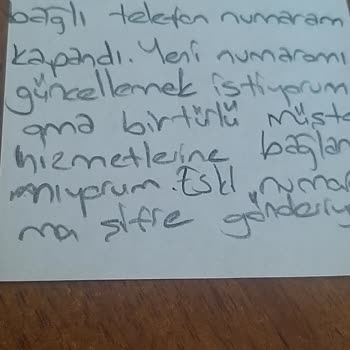 bağlı telefon numaram
kapandı. Yeni numaramı
güncellemek istiyorum
ama bir türlü müşte
hizmetlerine bağlan
mıyorum. Eski numa
ma şifre gönderiy